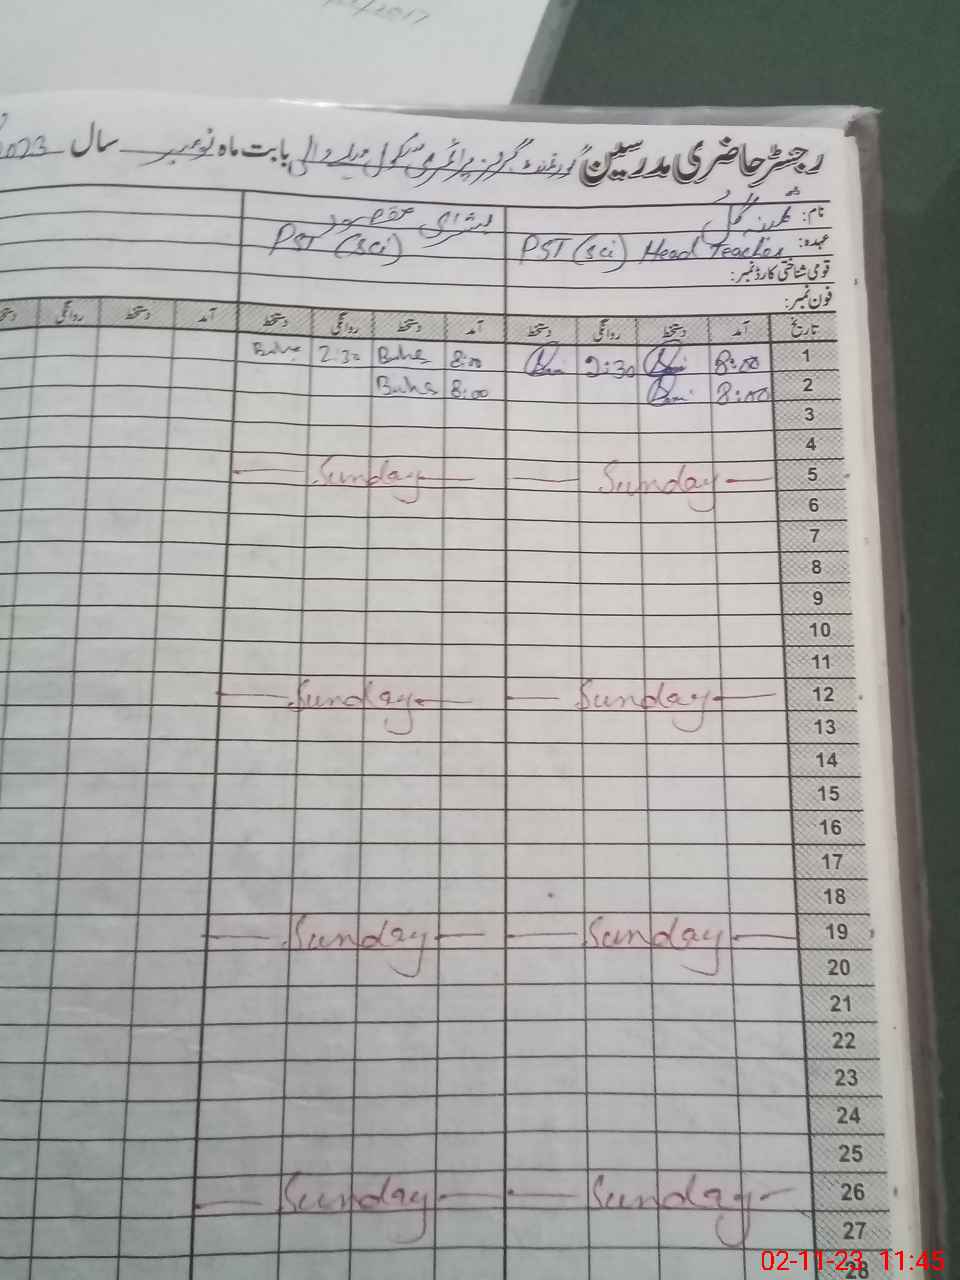 2017
رجسٹر حاضری مدرسین گورنمنٹ گرلز پرائمری سکول والی بابت ماہ نومبر سال 2023
نام: گل
بشریٰ
عہدہ: PST (sci) Head Teacher
PST (sci)
قومی شناختی کارڈ نمبر:
فون نمبر:
تاریخ آمد دستخط روانگی دستخط آمد دستخط روانگی دستخط آمد دستخط روانگی دستخط
1 8:00 2:30 8:00 2:30
2 8:00 8:00
3
4
5 Sunday Sunday
6
7
8
9
10
11
12 Sunday Sunday
13
14
15
16
17
18
19 Sunday Sunday
20
21
22
23
24
25
26 Sunday Sunday
27
28
02-11-23 11:45